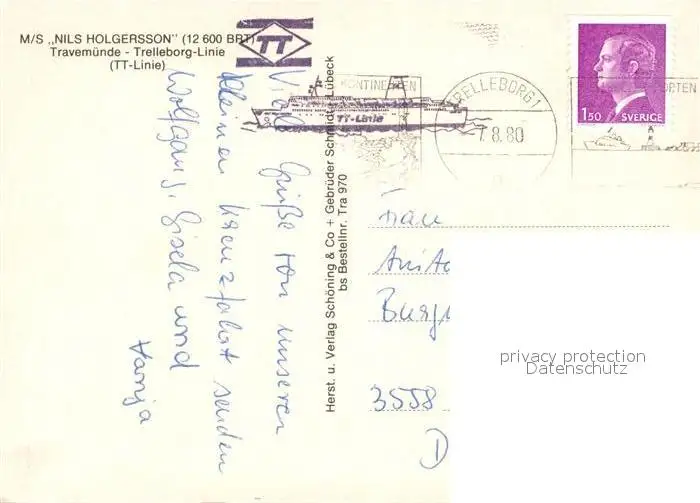 M/S „NILS HOLGERSSON" (12 600 BRT)
Travemünde - Trelleborg-Linie
(TT-Linie)
TT
TT-Linie
KONTINENTEN
TRELLEBORG 1
7.8.80
PORTEN
150 SVERIGE
Viele Grüße von unserer
kleinen Kreuzfahrt senden
Wolfgang, Gisela und
Tanja
Herst. u. Verlag Schöning & Co + Gebrüder Schmidt, Lübeck
bs Bestellnr. Tra 970
Frau
Anita
3558
D
privacy protection
Datenschutz